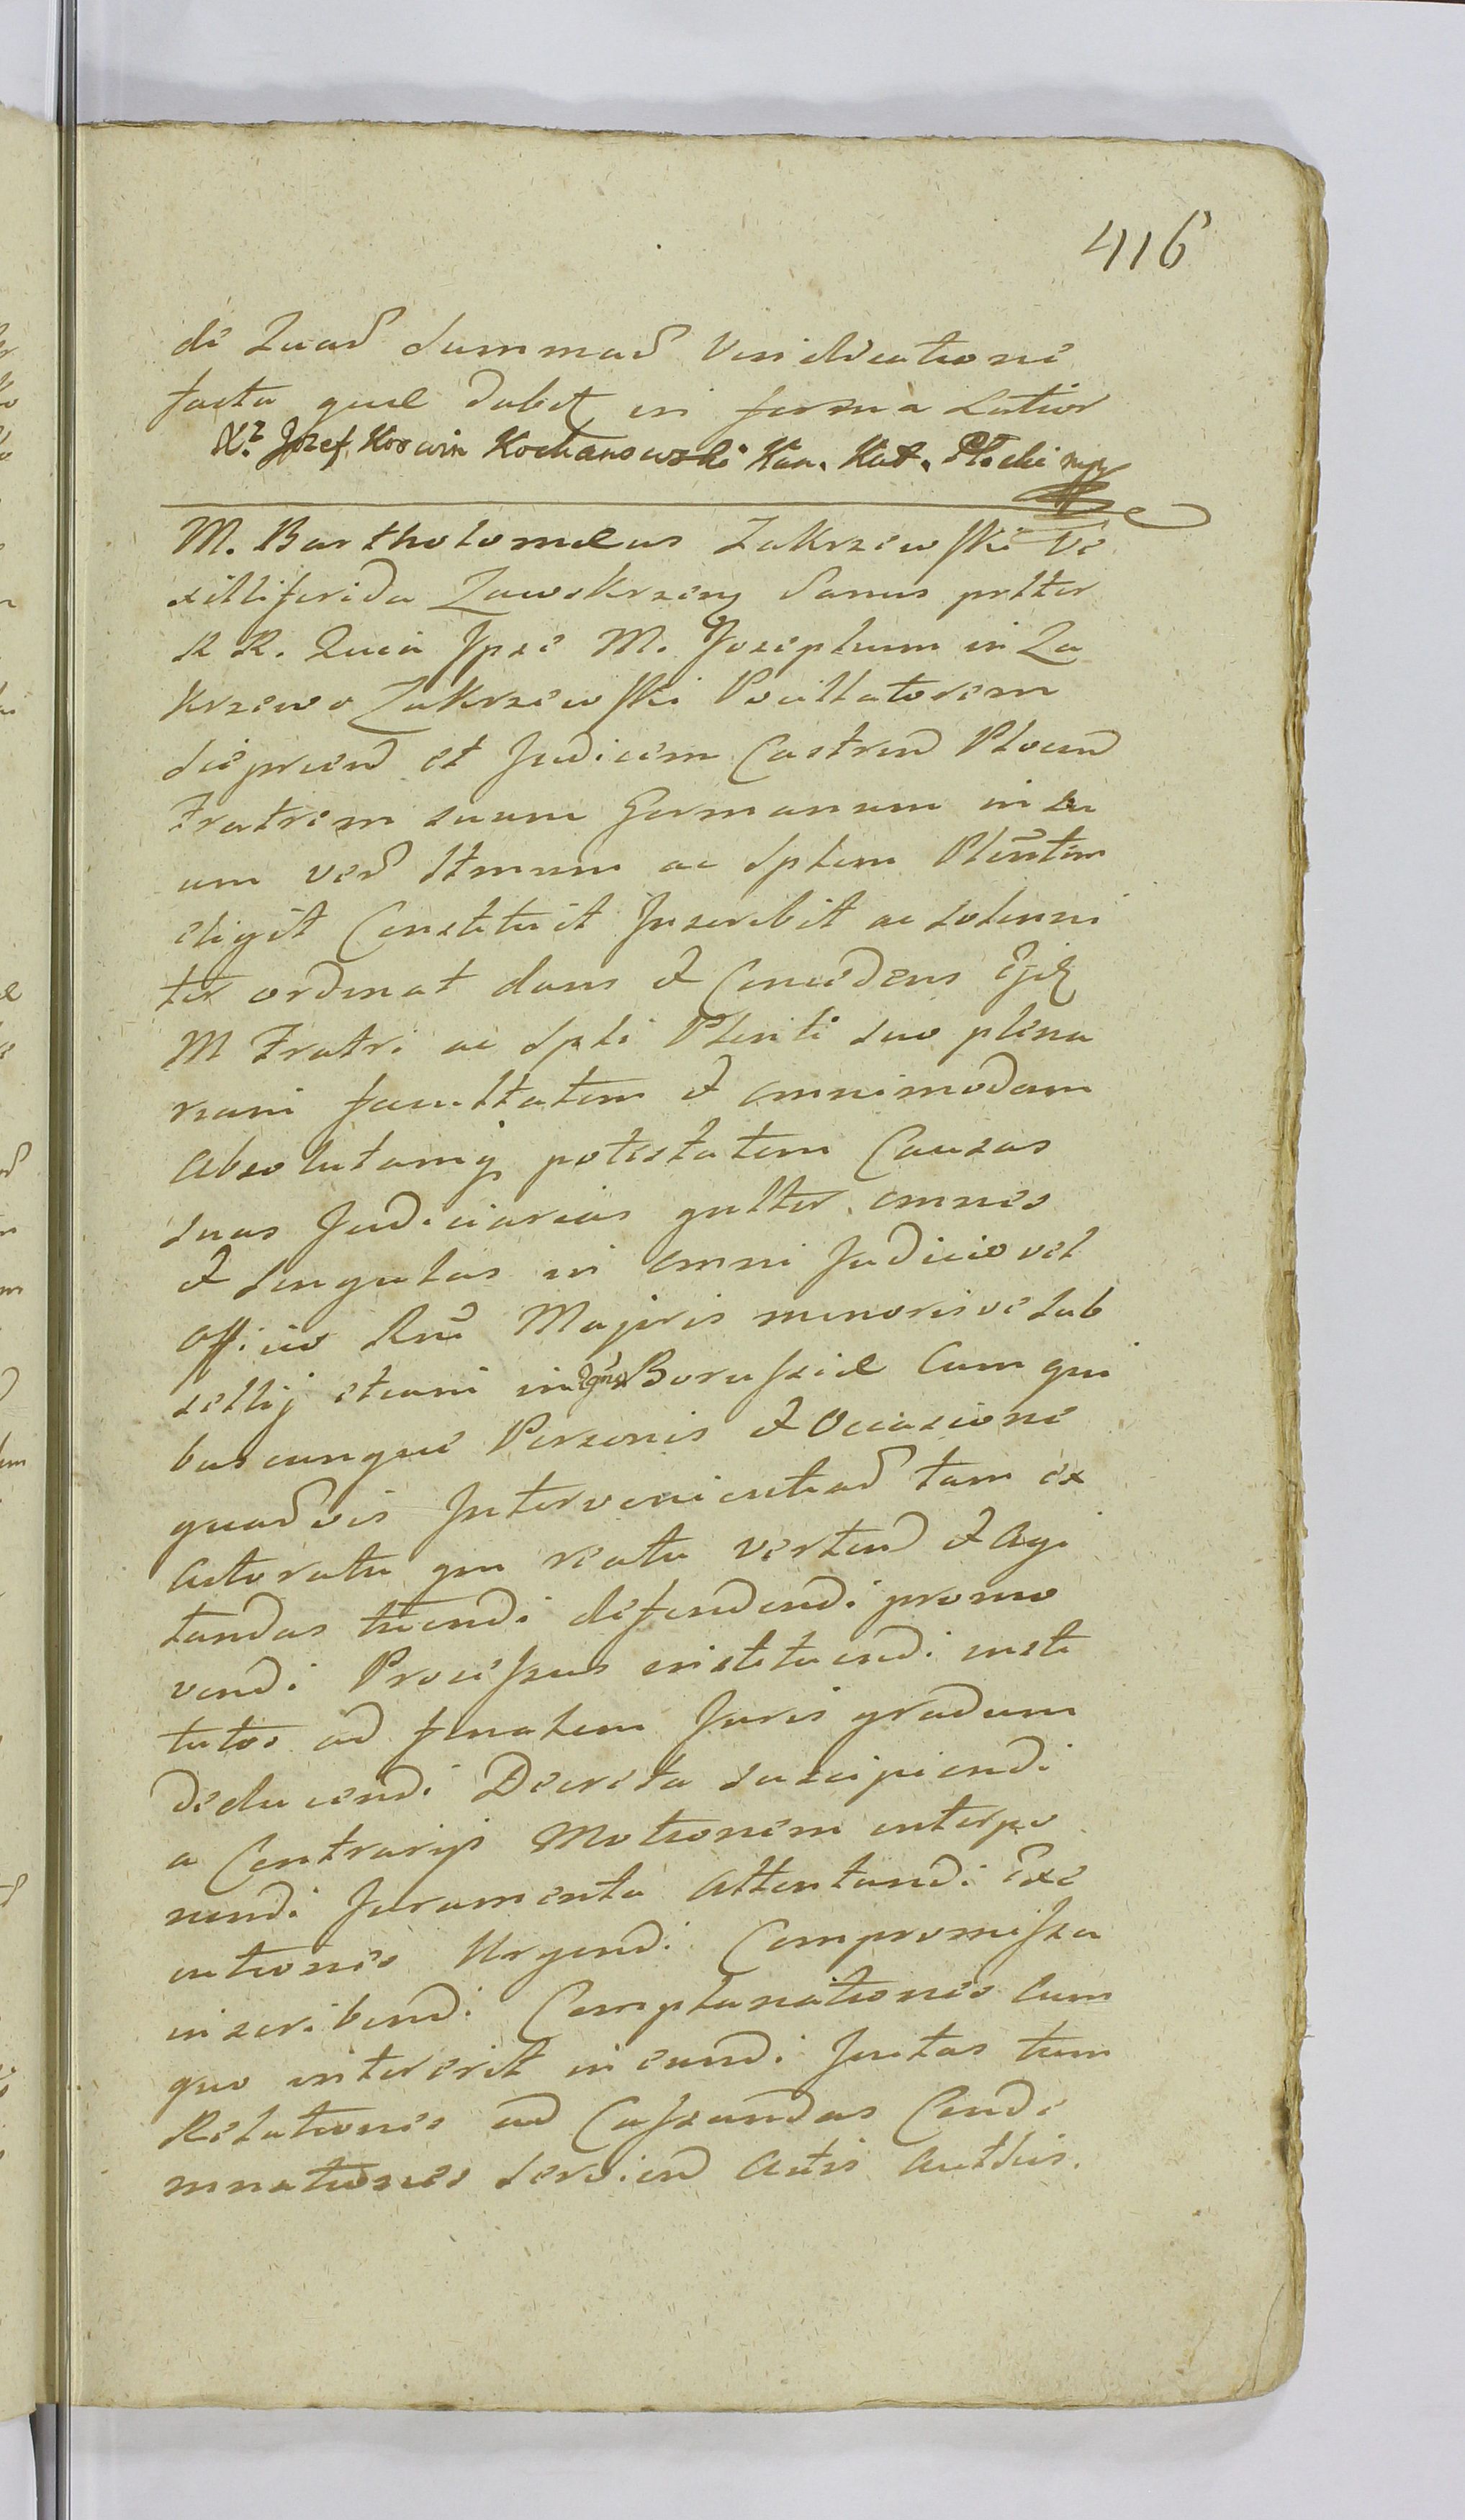 416
de Quas Summas Veridicatione
facta quae dabit in forma Latior
Xz Jozef Korwin Kochanowski Kan. Kat. Płocki mp
M. Bartholomeus Zakrzewski Ve
xilliferida Zawskrzens Sanus prtter
R R. Quia Ipse M. Josephum in Za
krzewo Zakrzewski Pocillatorem
Sieprcens et Judicem Castren Plocen
Fratrem suum Germanum in su
um ver ltmum ac splem Plentem
eligit Constituit Inscribit ac solenni
ter ordinat dans & Concedens Ejd
M Fratri ac Spli Plenti suo plena
riam facultatem & omnimodam
absolutamq potestatem Causas
suas Judiciarias gnlter omnes
& singulas in omni Judicio vel
Officio Rni Majoris minorisve sub
sellij etiam in Borussiae Cum qui
buscunque Personis & Occasione
quasvis Intervenientes tam ex
actoratu qm reatu verten & agi
tandas tuendi defendendi promo
vendi Processus instituendi insti
tutos ad finalem Juris gradum
deducendi Decreta suscipiendi
a Contrarys Motionem interpo
nendi Juramenta attentandi Exe
cutiones Urgendi Compromissa
inscribendi Complanationes cum
quo intererit ineundi Juxtas tum
Relationes ad Cassandas Conde
mnationes servien Actis authis.